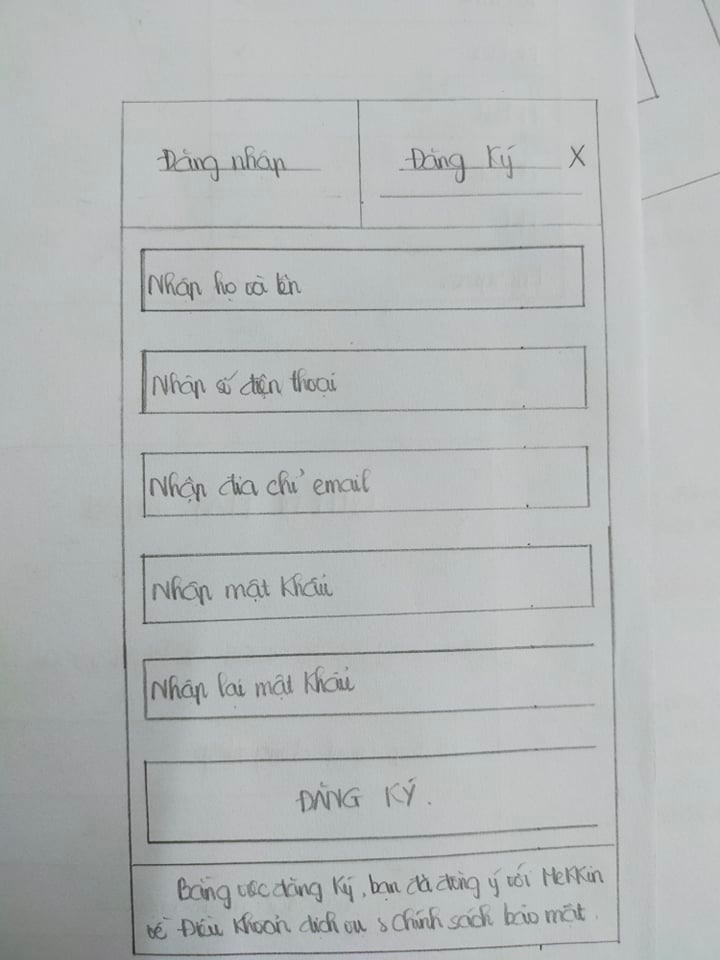 Đăng nhập
Đăng Ký X
Nhập họ và tên
Nhập số điện thoại
Nhập địa chỉ email
Nhập mật khẩu
Nhập lại mật khẩu
ĐĂNG KÝ.
Bằng việc đăng ký, bạn đã đồng ý với Mekkin
về Điều khoản dịch vụ & chính sách bảo mật.